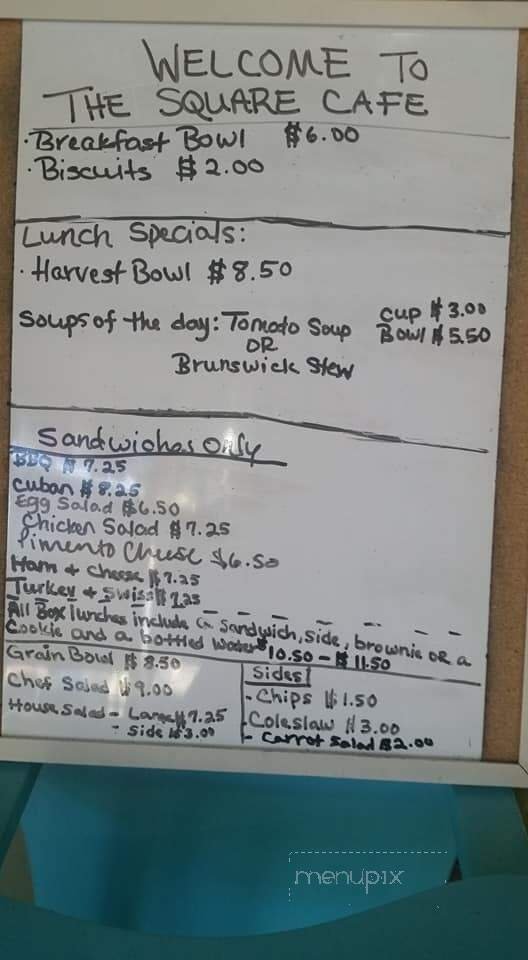 WELCOME TO
THE SQUARE CAFE
· Breakfast Bowl $6.00
· Biscuits $2.00
Lunch Specials:
· Harvest Bowl $8.50
Soups of the day: Tomato Soup cup $3.00
OR Bowl $5.50
Brunswick Stew
Sandwiches Only
BBQ $7.25
Cuban $8.25
Egg Salad $6.50
Chicken Salad $7.25
Pimento Cheese $6.50
Ham + Cheese $7.25
Turkey + Swiss $7.25
All Box lunches include a sandwich, side, brownie OR a
Cookie and a bottled water $10.50 - $11.50
Grain Bowl $8.50
Chef Salad $9.00
House Salad - Large $7.25
- Side $3.00
Sides
- Chips $1.50
- Coleslaw $3.00
- Carrot Salad $2.00
menupix